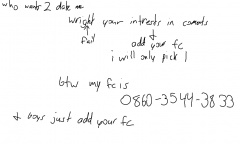 who wants 2 date me
wright your intrests in coments
fail
add your fc
i will only pick 1
btw my fc is
0860-3544-3833
& boys just add your fc